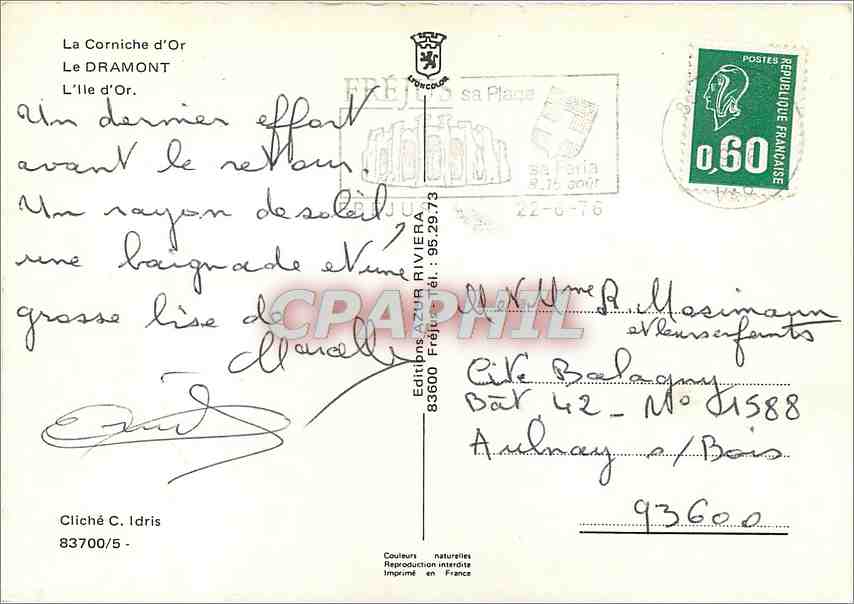 La Corniche d'Or
Le DRAMONT
L'Ile d'Or.
LYONCOLOR
Un dernier effort
avant le retour.
Un rayon de soleil,
une baignade et une
grosse bise de
Marcelle
FRÉJUS sa Plage
sa Feria
FREJUS 22-6-76
POSTES
REPUBLIQUE FRANÇAISE
0,60
Editions AZUR RIVIERA
83600 Fréjus - Tél. : 95.29.73
CPAPHIL
M et Mme R Mosimann
et leurs enfants
Cité Balagny
Bât. 42 - No 1588
Aulnay s/Bois
93600
Cliché C. Idris
83700/5 -
Couleurs naturelles
Reproduction interdite
Imprimé en France